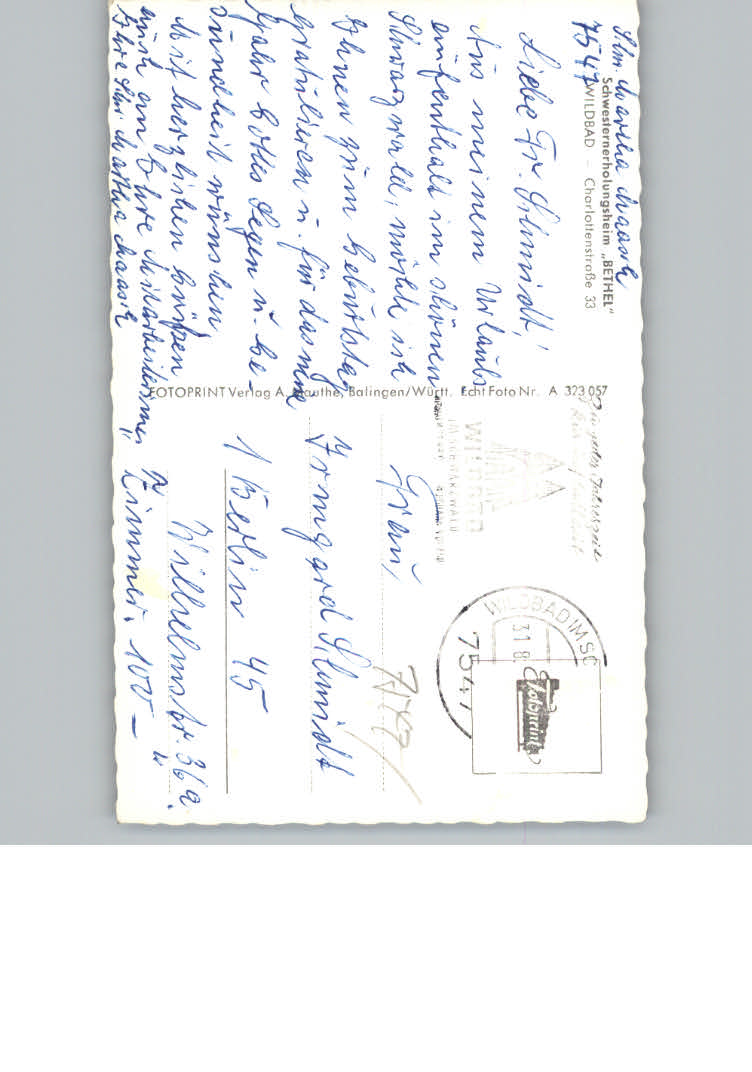 Schw. Martha Maasch
7547
Schwesternerholungsheim „BETHEL"
WILDBAD – Charlottenstraße 33
Liebe Fr. Schmidt!
Aus meinem Urlaubs
aufenthalt im schönen
Schwarzwald, möchte ich
Ihnen zum Geburtstag
gratulieren u. für das neue
Jahr Gottes Segen u. Ge-
sundheit wünschen
Mit herzlichen Grüßen
auch an Ihre Mitarbeiterinnen
Ihre Schw. Martha Maasch
FOTOPRINT Verlag A. Mauthe, Balingen/Württ. Echt Foto Nr. A 323 057
WILDBAD
IM SCHWARZWALD
WILDBAD IM SC
31.8.
7547
Fotoprint
Frau
Irmgard Schmidt
1 Berlin 45
Wilhelmstr. 36a.
Zimmer. 100 –